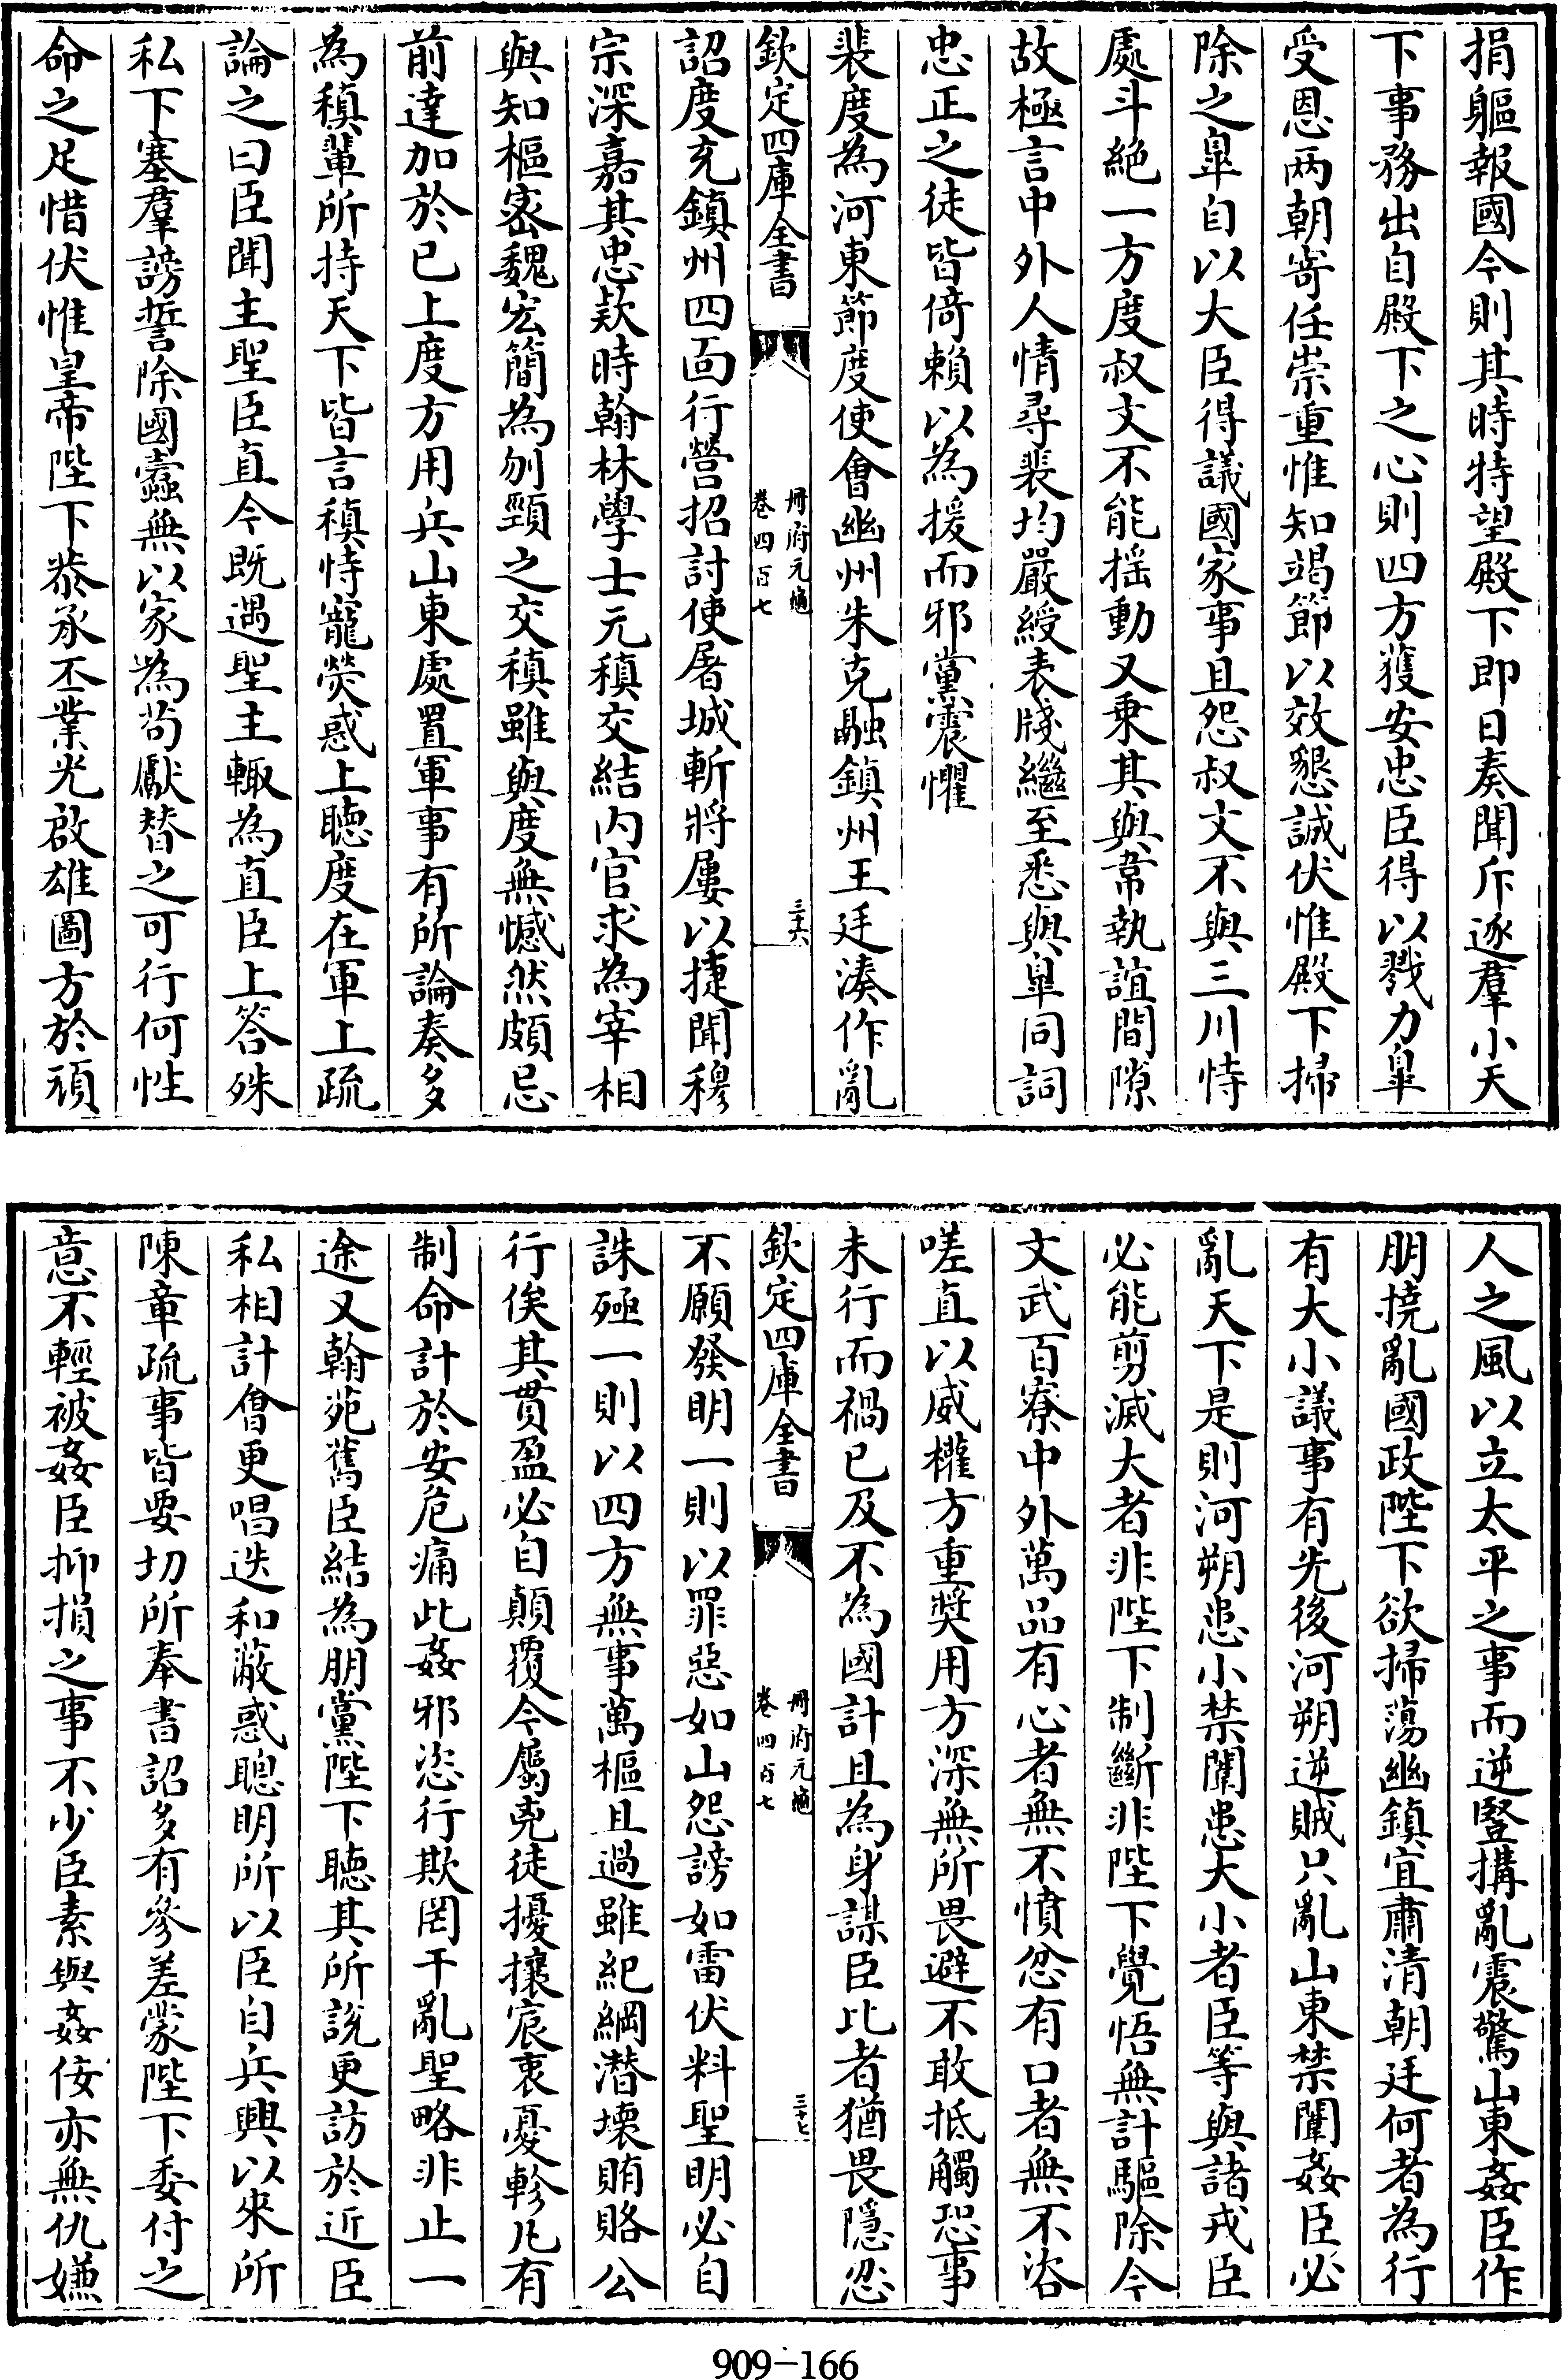 捐軀報國今則其時特望殿下即日奏聞斥逐羣小天
下事務出自殿下之心則四方獲安忠臣得以戮力臯
受恩两朝寄任崇重惟知竭節以效懇誠伏惟殿下掃
除之臯自以大臣得議國家事且怨叔文不與三川恃
處斗絶一方度叔文不能揺動又乗其與韋執誼間隙
故極言中外人情尋裴均嚴綬表牋繼至悉與臯同詞
忠正之徒皆倚賴以為援而邪黨震懼
裴度為河東節度使會幽州朱克融鎮州王廷湊作亂
欽定四庫全書
冊府元龜
卷四百七
三十六
詔度充鎮州四面行營招討使屠城斬將屢以捷聞穆
宗深嘉其忠欵時翰林學士元稹交結内官求為宰相
與知樞宻魏宏簡為刎頸之交稹雖與度無憾然頗忌
前達加於已上度方用兵山東處置軍事有所論奏多
為稹輩所持天下皆言稹恃寵熒惑上聽度在軍上疏
論之曰臣聞主聖臣直今既遇聖主輙為直臣上答殊
私下塞羣謗誓除國蠹無以家為茍獻替之可行何性
命之足惜伏惟皇帝陛下恭承丕業光啟雄圖方殄頑
人之風以立太平之事而逆豎搆亂震驚山東姦臣作
朋撓亂國政陛下欲掃蕩幽鎮宜肅清朝廷何者為行
有大小議事有先後河朔逆賊只亂山東禁闈姦臣必
亂天下是則河朔患小禁闈患大小者臣等與諸戎臣
必能剪滅大者非陛下制斷非陛下覺悟無計驅除今
文武百寮中外萬品有心者無不憤忿有口者無不咨
嗟直以威權方重奨用方深無所畏避不敢抵觸恐事
未行而禍已及不為國計且為身謀臣比者猶畏隱忍
欽定四庫全書
冊府元龜
卷四百七
三十七
不願發明一則以罪惡如山怨謗如雷伏料聖明必自
誅殛一則以四方無事萬樞且過雖紀綱潛壞賄賂公
行俟其貫盈必自顛覆今屬兇徒擾攘宸衷憂軫凡有
制命計於安危痛此姦邪恣行欺罔干亂聖略非止一
途又翰苑舊臣結為朋黨陛下聽其所說更訪於近臣
私相計㑹更唱迭和蔽惑聰明所以臣自兵興以來所
陳章疏事皆要切所奉書詔多有參差蒙陛下委付之
意不輕被姦臣抑損之事不少臣素與姦佞亦無仇嫌
909-166